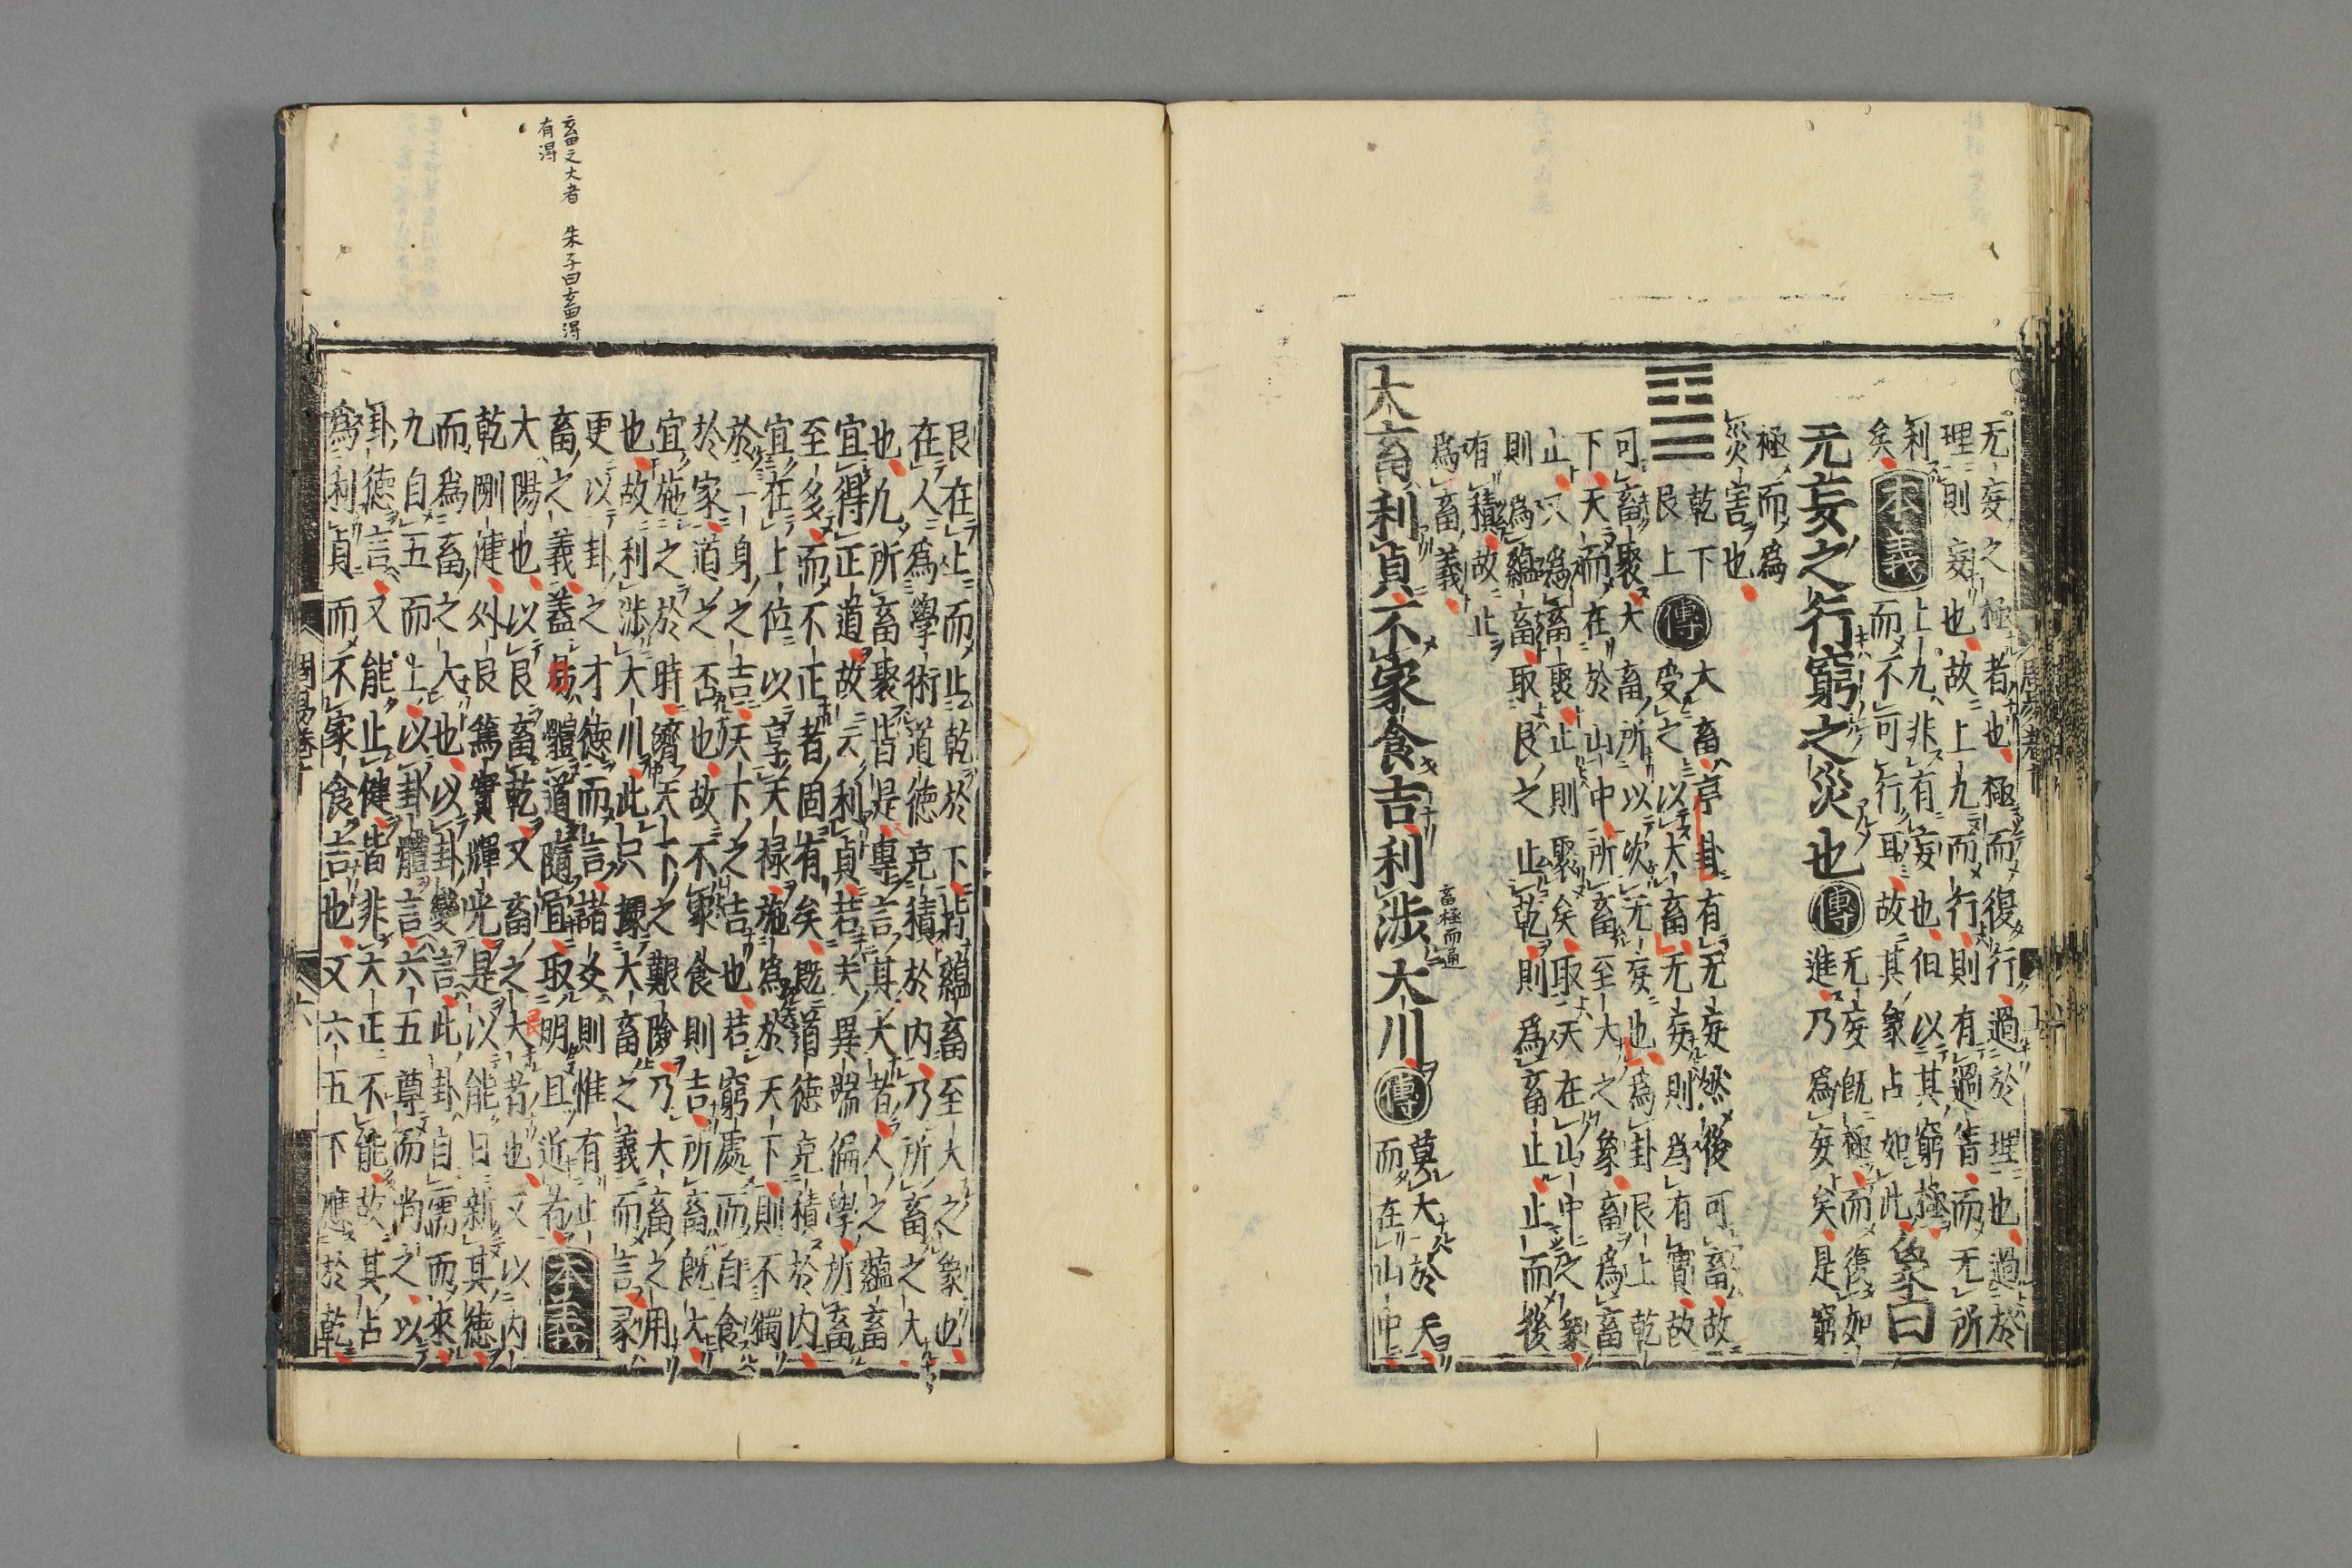 无妄之極者也極而復行過於理也過於
理則妄也故上九而行則有過眚而无所
利
矣
本義
上九非有妄也但以其窮極
而不可行耳故其象占如此
象曰
无妄之行窮之災也
傳
无妄既極而復加
進乃爲妄矣是窮
極而爲
災害也
乾下
艮上
傳
大畜序卦有无妄然後可畜故
受之以大畜无妄則爲有實故
可畜聚大畜所以次无妄也爲卦艮上乾
下天而在於山中所畜至大之象畜爲畜
止又爲畜聚止則聚矣取天在山中之象
則爲蘊畜取艮之止乾則爲畜止止而後
有積故止
爲畜義
畜極而通
大畜利貞不家食吉利涉大川
傳
莫大於天
而在山中
艮在上而止乾於下皆蘊畜至大之象也
在人爲學術道徳充積於内乃所畜之大
也凡所畜聚皆是專言其大者人之蘊畜
宜得正道故云利貞若夫異端偏學所畜
至多而不正者固有矣既道徳充積於内
宜在上位以享天祿施爲於天下則不獨
於一身之吉天下之吉也若窮處而自食
於家道之否也故不家食則吉所畜既大
宜施之於時濟天下之艱險乃大畜之用
也故利渉大川此只據大畜之義而言彖
更以卦之才徳而言諸爻則惟有止
畜之義蓋易體道隨宜取明且近者
本義
大陽也以艮畜乾又畜之大者也又以内
乾剛健外艮篤實輝光是以能日新其徳
而爲畜之大也以卦變言此卦自需而來
九自五而上以卦體言六五尊而尚之以
卦徳言又能止健皆非大正不能故其占
爲利貞而不家食吉也又六五下應於乾
畜之大者 朱子曰畜得
有得